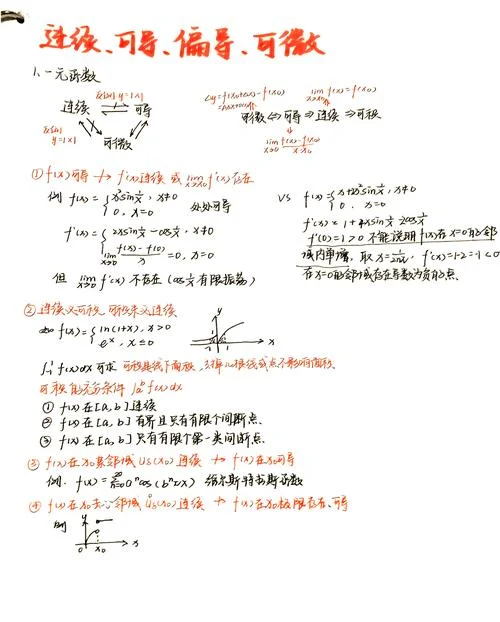 连续、可导、偏导、可微
1、一元函数
反例 y=|x|
连续 ⇌ 可导
反例 y=|x|
可微
Δy=f(x0+Δx)-f(x0)
lim x→x0 f(x)=f(x0)
可微 ⇔ 可导 ⇒ 连续 ⇒ 可积
lim x→x0 f(x)-f(x0)/x-x0
① f(x)可导 ↛ f'(x)连续 或 lim x→x0 f'(x)存在
例 f(x)={x²sin1/x, x≠0
0, x=0 处处可导
f'(x)={2xsin1/x-cos1/x, x≠0
lim x→0 f(x)-f(0)/x=0, x=0
但 lim x→0 f'(x) 不存在 (cos1/x有限振荡)
VS f(x)={x+2x²sin1/x, x≠0
0, x=0
f'(x)=1+4xsin1/x-2cos1/x
f'(0)=1>0 不能说明f(x)在x=0的邻
域内单增, 取 x=1/2nπ, f'(x)=1-2=-1<0
在x=0的邻域存在导数为负的点.
② 连续必可积, 可积未必连续
如 f(x)={ln(1+x), x>0
e^x, x≤0
∫ f(x)dx 可求 可积是线下面积, 去掉几根线或点不影响面积
可积的充分条件 ∫ f(x)dx
① f(x)在[a,b]连续
② f(x)在[a,b]有界且只有有限个间断点.
③ f(x)在[a,b]只有有限个第一类间断点.
③ f(x)在x0某邻域 Uδ(x0)连续 ↛ f(x)在x0可导
例. f(x)=Σ a^n cos(b^n πx) 维尔斯特拉斯函数
④ f(x)在x0去心邻域 Ůδ(x0)连续 ↛ f(x)在x0极限存在、可导
例
y
0 x0 x